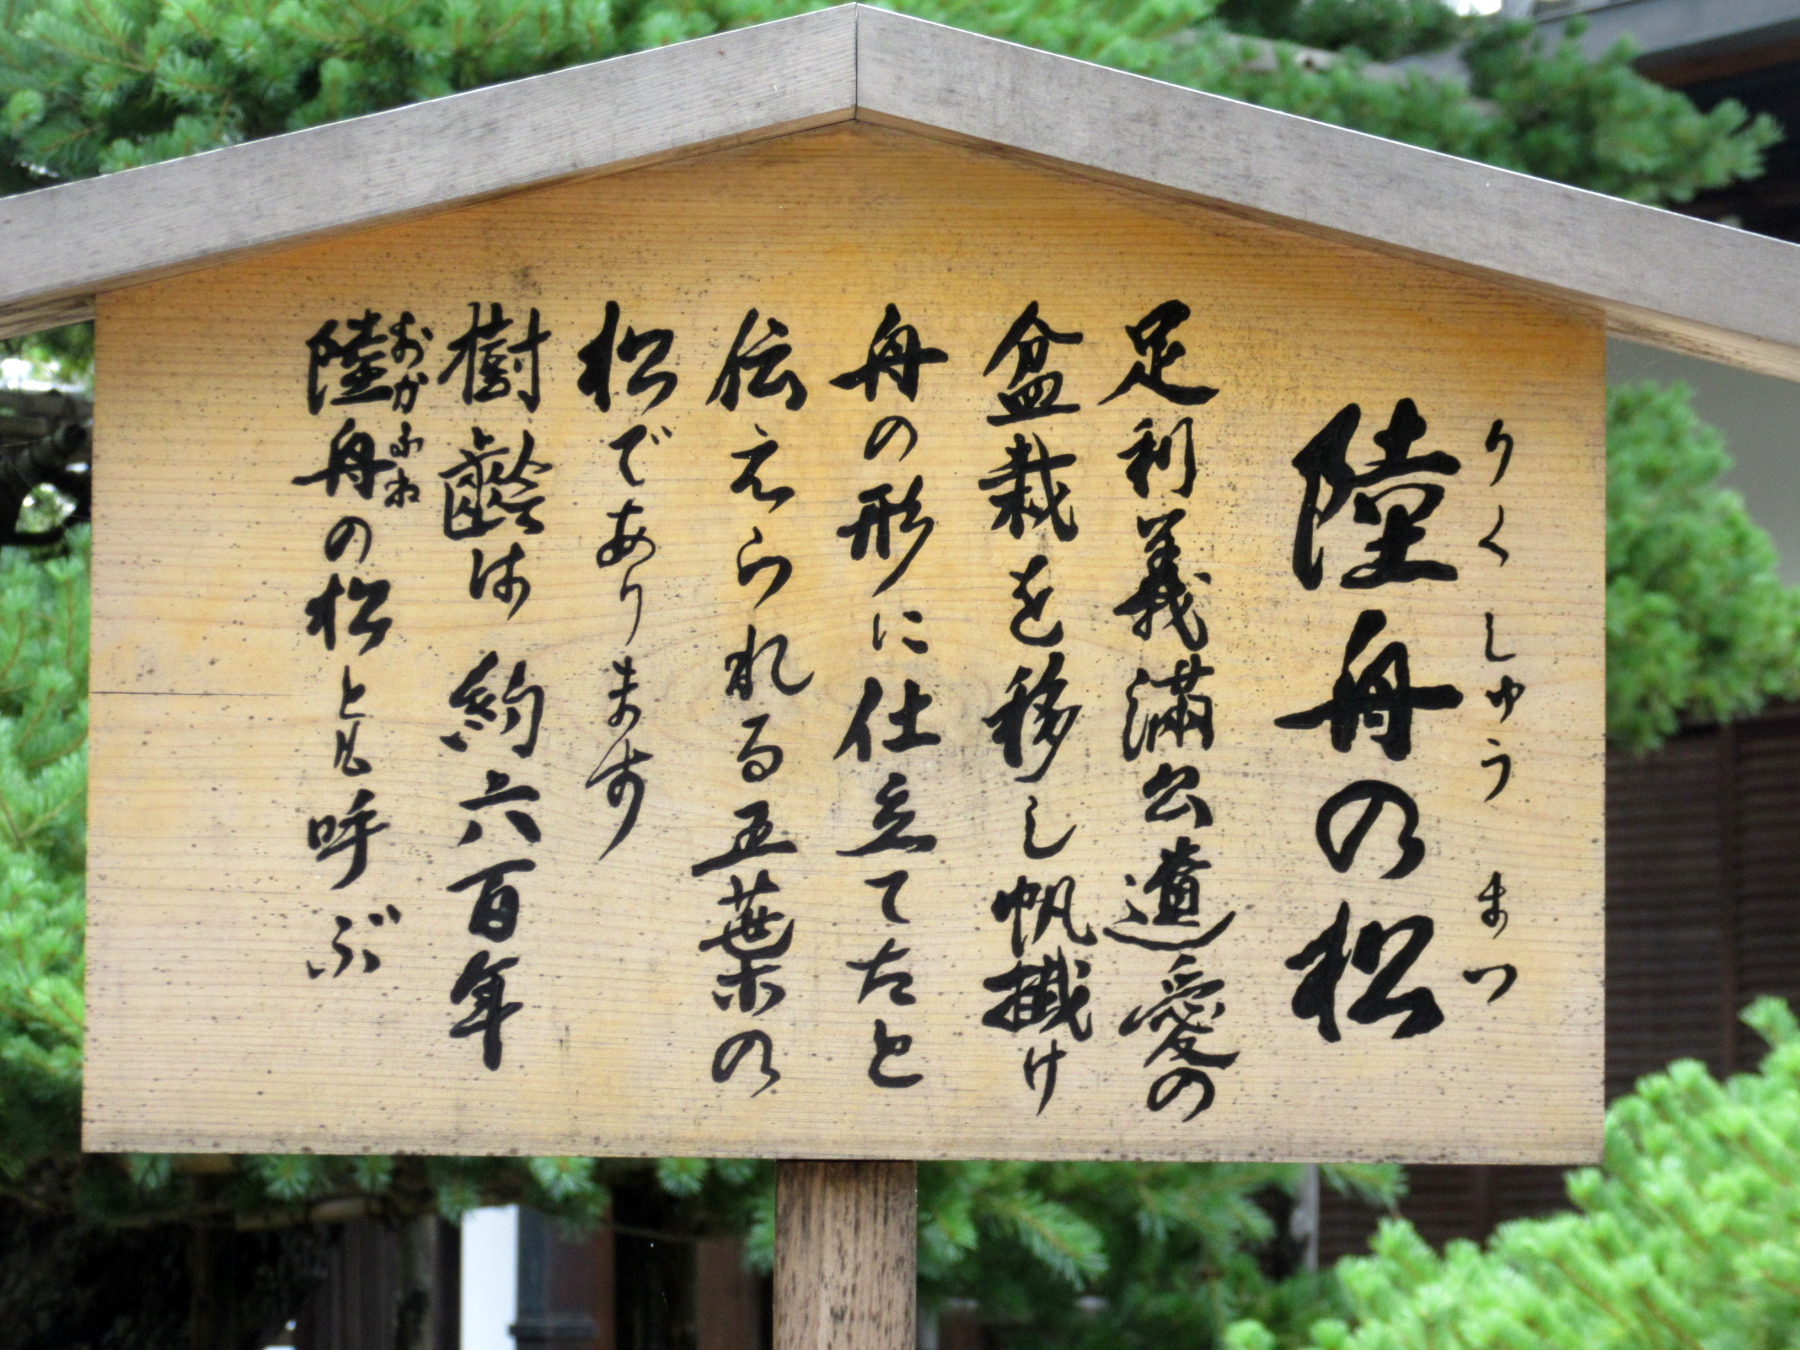 りくしゅうまつ
陸舟の松
足利義満公遺愛の
盆栽を移し帆掛け
舟の形に仕立てたと
伝えられる五葉の
松であります
樹齢は約六百年
おかふね
陸舟の松とも呼ぶ